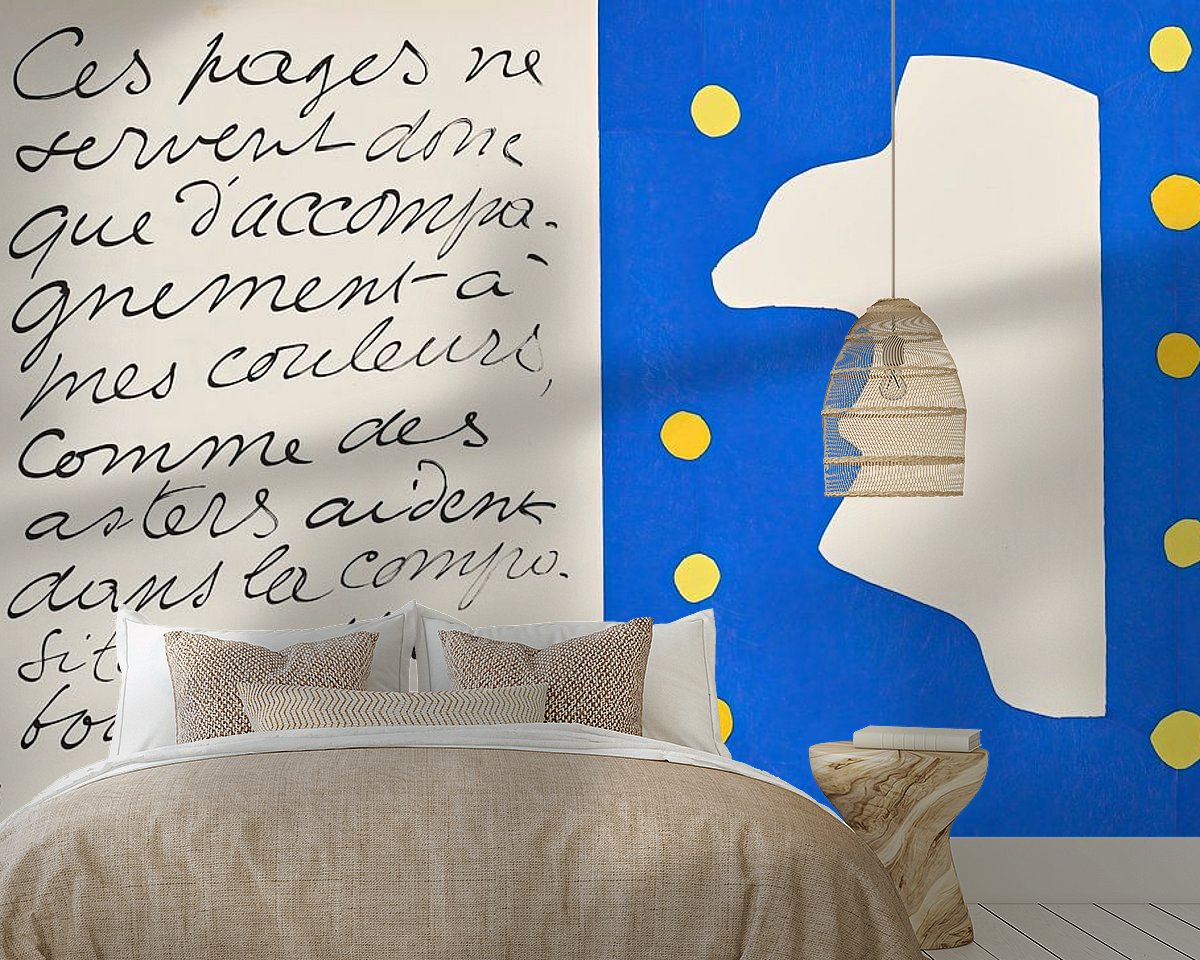 Ces pages ne
servent donc
que d'accompa-
gnement à
mes couleurs,
comme des
asters aident
dans la compo-